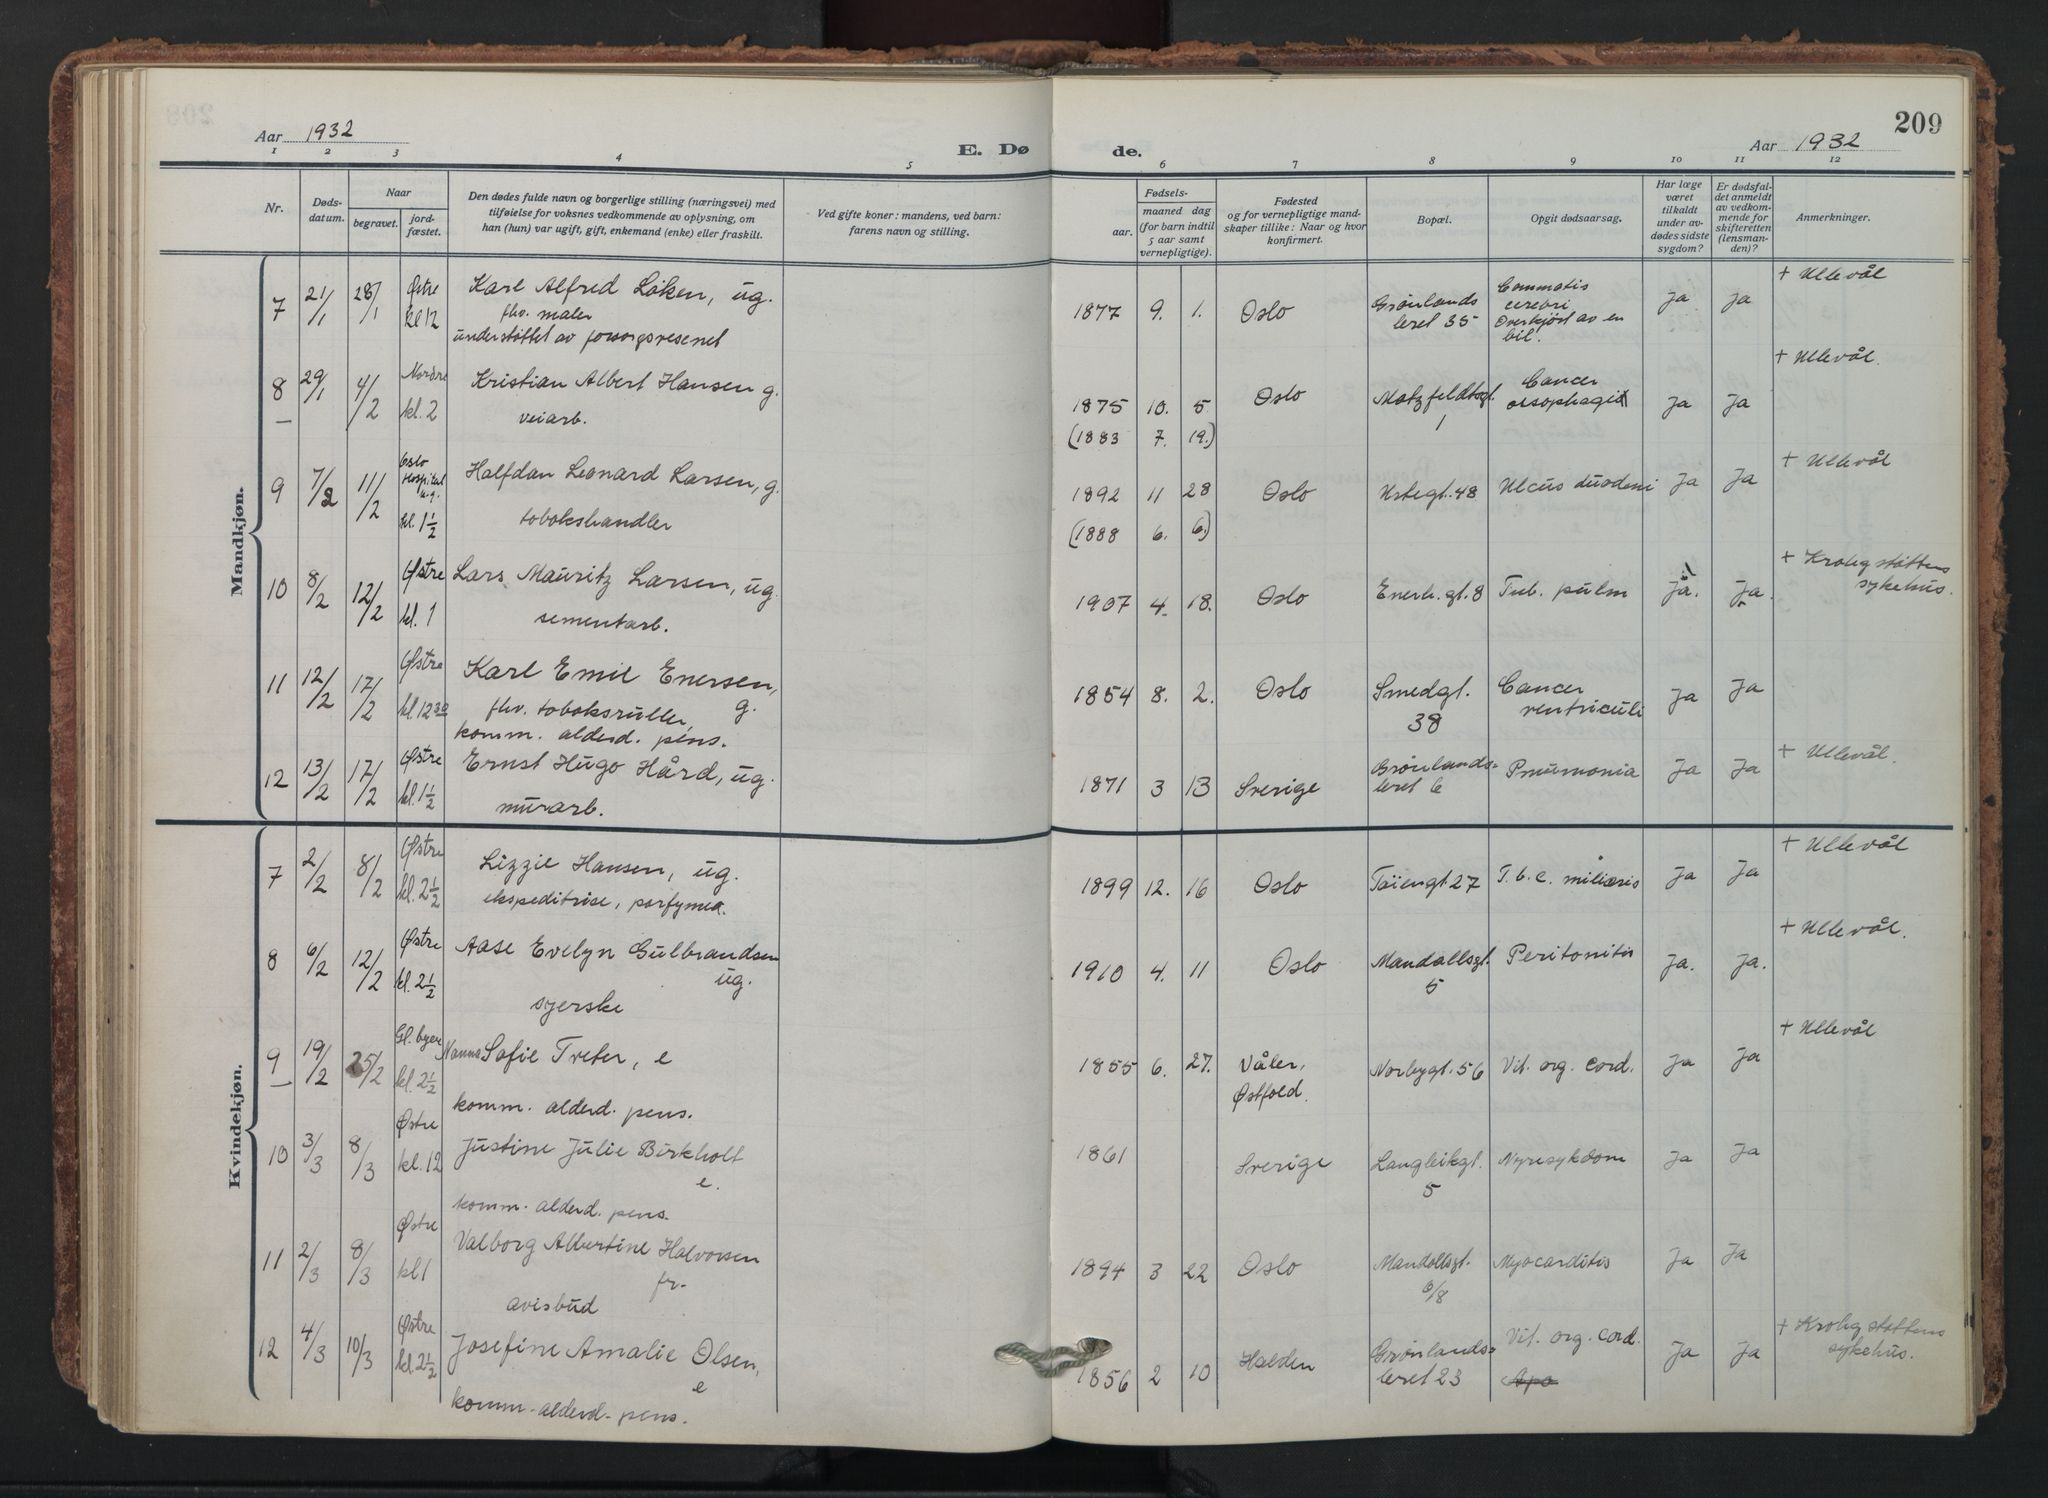 209
Aar 1932
E. Dø
de.
Aar 1932
1 2 3 4 5 6 7 8 9 10 11 12
Nr.
Døds-
datum.
Naar
begravet.
jord-
fæstet.
Den dødes fulde navn og borgerlige stilling (næringsvei) med
tilføielse for voksnes vedkommende av oplysning, om
han (hun) var ugift, gift, enkemand (enke) eller fraskilt.
Ved gifte koner: mandens, ved barn:
farens navn og stilling.
Fødsels-
aar.
maaned dag
(for barn indtil
5 aar samt
vernepligtige).
Fødested
og for vernepligtige mand-
skaper tillike: Naar og hvor
konfirmert.
Bopæl.
Opgit dødsaarsag.
Har læge
været
tilkaldt
under av-
dødes sidste
sygdom?
Er dødsfal-
det anmeldt
av vedkom-
mende for
skifteretten
(lensman-
den)?
Anmerkninger.
Mandkjøn.
7 21/1 28/1 Østre kl 12
Karl Alfred Løken, ug.
fhv. maler
understøttet av forsorgsvesenet
1877 9. 1. Oslo
Grønlands
leret 35
Commotis
cerebri
Overkjørt av en
bil.
Ja Ja + Ullevål
8 29/1 4/2 Nordre kl. 2
Kristian Albert Hansen g.
veiarb.
1875 10. 5 Oslo
(1883 7. 19.)
Motzfeldtsgt.
1
Cancer
oesophagi
Ja Ja + Ullevål.
9 7/2 11/2 Oslo Hospital kl. 1½
Halfdan Leonard Larsen, g.
tobakshandler
1892 11 28 Oslo
(1888 6. 6)
Urtegt. 48 Ulcus duodeni Ja Ja + Ullevål
10 8/2 12/2 Østre kl. 1
Lars Mauritz Larsen, ug.
sementarb.
1907 4. 18. Oslo Enerh. gt. 8 Tub. pulm Ja. Ja.
+ Krohgstøttens
sykehus.
11 12/2 17/2 Østre kl. 12 30
Karl Emil Enersen,
g.
fhv. tobaksruller,
komm. alderd. pens.
1854 8. 2. Oslo
Smedgt.
38
Cancer
ventriculi
Ja Ja
12 13/2 17/2 Østre kl. 1½
Ernst Hugo Hård, ug.
murarb.
1871 3 13 Sverige
Grønlands=
leret 6
Pneumonia Ja Ja + Ullevål.
Kvindekjøn.
7 2/2 8/2 Østre kl. 2½
Lizzie Hansen, ug.
ekspeditrise, parfyme
1899 12. 16 Oslo Tøiengt 27 T.b.c. miliaris Ja Ja + Ullevål
8 6/2 12/2 Østre kl. 2½
Aase Evelyn Gulbrandsen
ug.
syerske
1910 4. 11 Oslo
Mandallsgt.
5
Peritonitis Ja. Ja. + Ullevål.
9 19/2 25/2 Gl. byen kl. 2½
Nanna Sofie Treter, e
komm. alderd. pens.
1855 6. 27.
Våler,
Østfold.
Norbygt. 56 Vit. org. cord. Ja Ja + Ullevål
10 3/3 8/3 Østre kl. 12
Justine Julie Birkholt
e.
komm. alderd. pens.
1861 Sverige
Langleikgt.
5
Nyresykdom Ja Ja
11 2/3 8/3 Østre kl 1
Valborg Albertine Halvorsen
fr.
avisbud
1894 3 22 Oslo
Mandallsgt.
6/8
Myocarditis Ja Ja
12 4/3 10/3 Østre kl. 2½
Josefine Amalie Olsen,
e
komm. alderd. pens.
1856 2 10 Halden
Grønlands=
leret 23
Vit. org. cord.
Apo
Ja Ja
+ Krohgstøttens
sykehus.